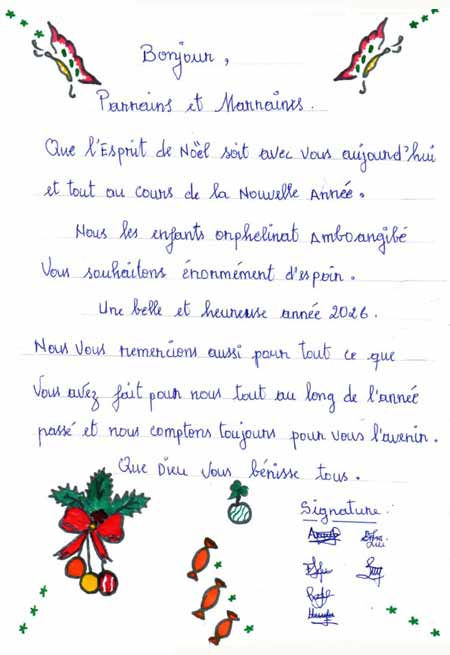 Bonjour,
Parrains et Marraines.
Que l'Esprit de Noël soit avec vous aujourd'hui
et tout au cours de la Nouvelle Année.
Nous les enfants orphelinat Amboangibé
Vous souhaitons énormément d'espoir.
Une belle et heureuse année 2026.
Nous Vous remercions aussi pour tout ce que
Vous avez fait pour nous tout au long de l'année
passé et nous comptons toujours pour vous l'avenir.
Que Dieu Vous bénisse tous.
Signature :